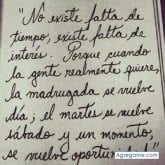 "No existe falta de
tiempo, existe falta de
interés. Porque cuando
la gente realmente quiere,
la madrugada se vuelve
día; el martes se vuelve
sábado y un momento,
se vuelve
Agregame.com